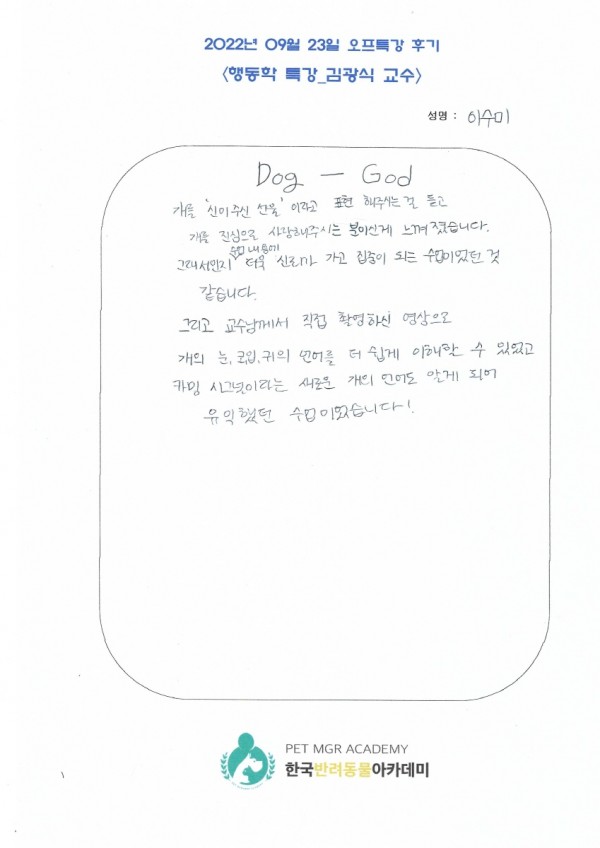 2022년 09월 23일 오프특강 후기
<행동학 특강_김광식 교수>
성명 : 이수미
Dog — God
개를 '신이 주신 선물' 이라고 표현 해주시는걸 듣고
개를 진심으로 사랑해주시는 분이신게 느껴졌습니다.
수업 내용에
그래서인지 더욱 신뢰가 가고 집중이 되는 수업이었던 것
같습니다.
그리고 교수님께서 직접 촬영하신 영상으로
개의 눈,코,입,귀의 언어를 더 쉽게 이해할 수 있었고
카밍 시그널이라는 새로운 개의 언어도 알게 되어
유익했던 수업이었습니다!
PET MGR ACADEMY
한국반려동물아카데미